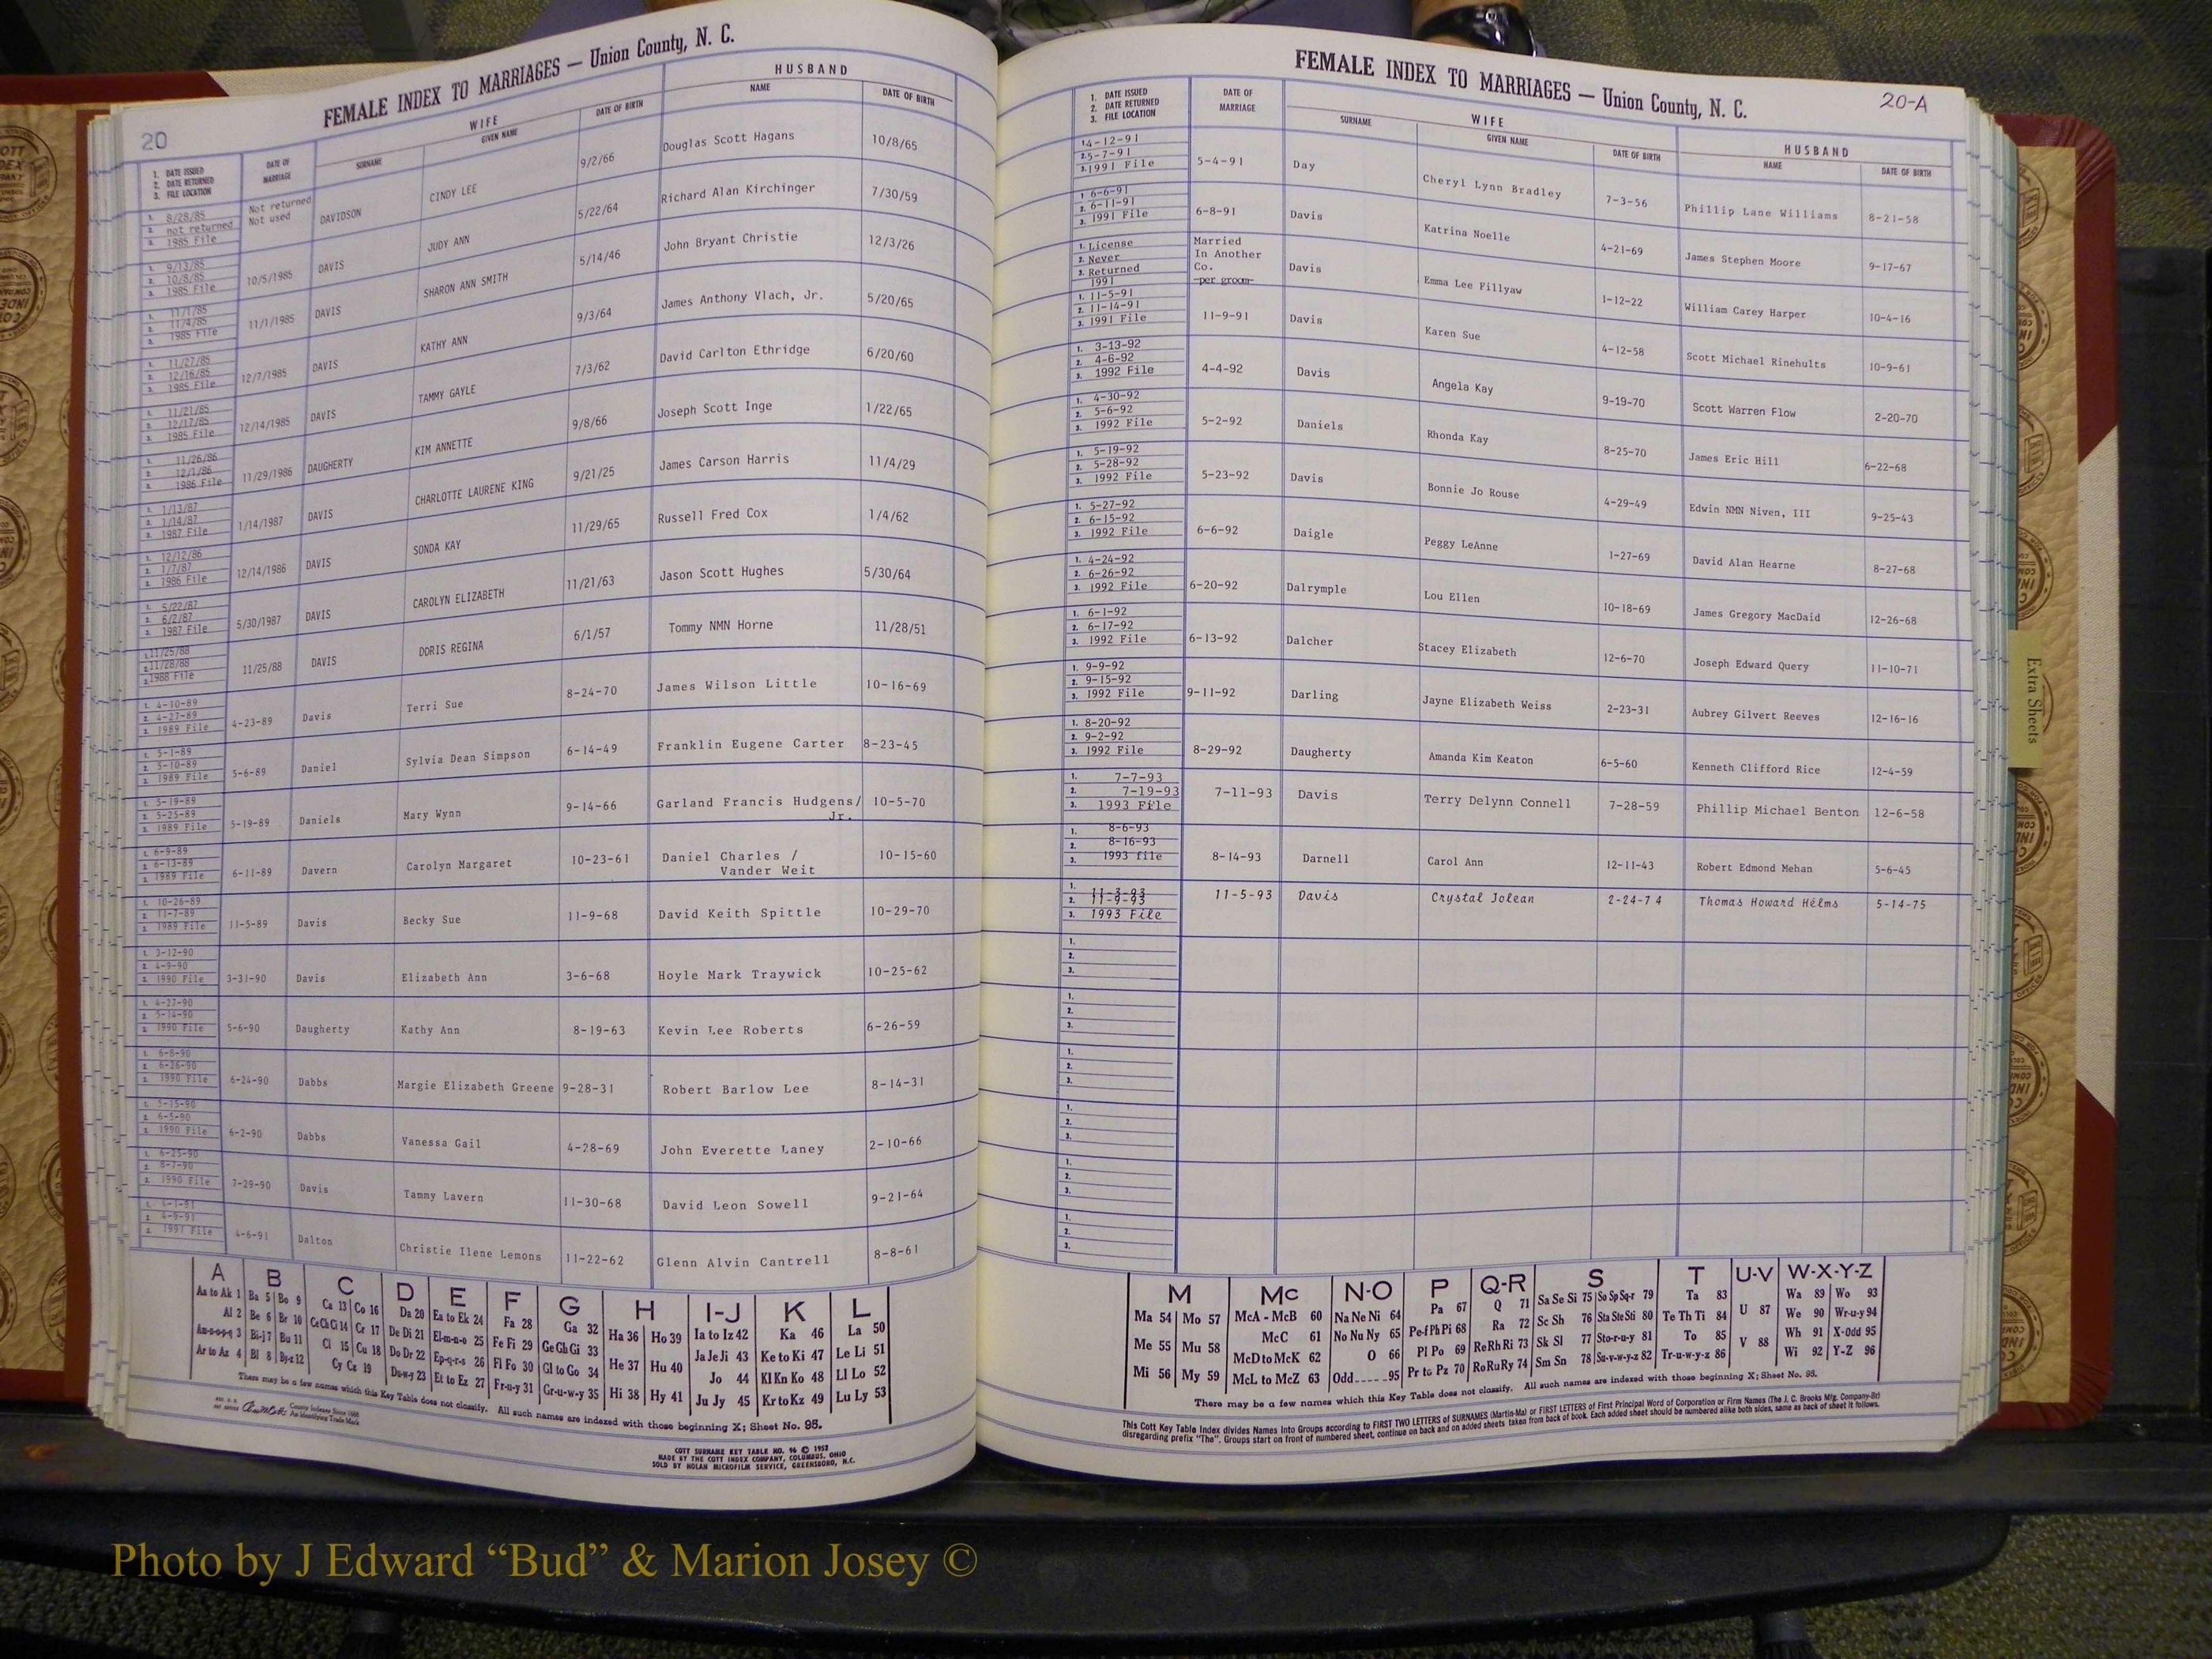 FEMALE INDEX TO MARRIAGES — Union County, N. C.
20
WIFE
HUSBAND
1. DATE ISSUED
2. DATE RETURNED
3. FILE LOCATION
DATE OF MARRIAGE
SURNAME
GIVEN NAME
DATE OF BIRTH
NAME
DATE OF BIRTH
1. 8/28/85 2. not returned 3. 1985 File Not returned Not used DAVIDSON CINDY LEE 9/2/66 Douglas Scott Hagans 10/8/65
1. 9/13/85 2. 10/8/85 3. 1985 File 10/5/1985 DAVIS JUDY ANN 5/22/64 Richard Alan Kirchinger 7/30/59
1. 11/1/85 2. 11/4/85 3. 1985 File 11/1/1985 DAVIS SHARON ANN SMITH 5/14/46 John Bryant Christie 12/3/26
1. 11/27/85 2. 12/16/85 3. 1985 File 12/7/1985 DAVIS KATHY ANN 9/3/64 James Anthony Vlach, Jr. 5/20/65
1. 11/21/85 2. 12/17/85 3. 1985 File 12/14/1985 DAVIS TAMMY GAYLE 7/3/62 David Carlton Ethridge 6/20/60
1. 11/26/86 2. 12/1/86 3. 1986 File 11/29/1986 DAUGHERTY KIM ANNETTE 9/8/66 Joseph Scott Inge 1/22/65
1. 1/13/87 2. 1/14/87 3. 1987 File 1/14/1987 DAVIS CHARLOTTE LAURENE KING 9/21/25 James Carson Harris 11/4/29
1. 12/12/86 2. 1/7/87 3. 1986 File 12/14/1986 DAVIS SONDA KAY 11/29/65 Russell Fred Cox 1/4/62
1. 5/22/87 2. 6/2/87 3. 1987 File 5/30/1987 DAVIS CAROLYN ELIZABETH 11/21/63 Jason Scott Hughes 5/30/64
1. 11/25/88 2. 11/28/88 3. 1988 File 11/25/88 DAVIS DORIS REGINA 6/1/57 Tommy NMN Horne 11/28/51
1. 4-10-89 2. 4-27-89 3. 1989 File 4-23-89 Davis Terri Sue 8-24-70 James Wilson Little 10-16-69
1. 5-1-89 2. 5-10-89 3. 1989 File 5-6-89 Daniel Sylvia Dean Simpson 6-14-49 Franklin Eugene Carter 8-23-45
1. 5-19-89 2. 5-25-89 3. 1989 File 5-19-89 Daniels Mary Wynn 9-14-66 Garland Francis Hudgens/ Jr. 10-5-70
1. 6-9-89 2. 6-13-89 3. 1989 File 6-11-89 Davern Carolyn Margaret 10-23-61 Daniel Charles / Vander Weit 10-15-60
1. 10-26-89 2. 11-7-89 3. 1989 File 11-5-89 Davis Becky Sue 11-9-68 David Keith Spittle 10-29-70
1. 3-12-90 2. 4-9-90 3. 1990 File 3-31-90 Davis Elizabeth Ann 3-6-68 Hoyle Mark Traywick 10-25-62
1. 4-27-90 2. 5-14-90 3. 1990 File 5-6-90 Daugherty Kathy Ann 8-19-63 Kevin Lee Roberts 6-26-59
1. 6-8-90 2. 6-26-90 3. 1990 File 6-24-90 Dabbs Margie Elizabeth Greene 9-28-31 Robert Barlow Lee 8-14-31
1. 5-15-90 2. 6-5-90 3. 1990 File 6-2-90 Dabbs Vanessa Gail 4-28-69 John Everette Laney 2-10-66
1. 6-25-90 2. 8-7-90 3. 1990 File 7-29-90 Davis Tammy Lavern 11-30-68 David Leon Sowell 9-21-64
1. 4-1-91 2. 4-9-91 3. 1991 File 4-6-91 Dalton Christie Ilene Lemons 11-22-62 Glenn Alvin Cantrell 8-8-61
A B C D E F G H I-J K L
Aa to Ak 1 Ba 5 Bo 9 Ca 13 Co 16 Da 20 Ea to Ek 24 Fa 28 Ga 32 Ha 36 Ho 39 Ia to Iz 42 Ka 46 La 50
Al 2 Be 6 Br 10 Ce Ch Ci 14 Cr 17 De Di 21 El-m-n-o 25 Fe Fi 29 Ge Gh Gi 33 Ja Je Ji 43 Ke to Ki 47 Le Li 51
Am-n-o-p-q 3 Bi-j 7 Bu 11 Cl 15 Cu 18 Do Dr 22 Ep-q-r-s 26 Fl Fo 30 Gl to Go 34 He 37 Hu 40 Jo 44 Kl Kn Ko 48 Ll Lo 52
Ar to Az 4 Bl 8 By-z 12 Cy Cz 19 Du-w-y 23 Et to Ez 27 Fr-u-y 31 Gr-u-w-y 35 Hi 38 Hy 41 Ju Jy 45 Kr to Kz 49 Lu Ly 53
There may be a few names which this Key Table does not classify. All such names are indexed with those beginning X; Sheet No. 95.
County Indexes Since 1888
An Identifying Trade Mark
COTT SURNAME KEY TABLE NO. 96 © 1952
MADE BY THE COTT INDEX COMPANY, COLUMBUS, OHIO
SOLD BY NOLAN MICROFILM SERVICE, GREENSBORO, N.C.
FEMALE INDEX TO MARRIAGES — Union County, N. C.
20-A
1. DATE ISSUED
2. DATE RETURNED
3. FILE LOCATION
DATE OF MARRIAGE
WIFE
SURNAME
GIVEN NAME
DATE OF BIRTH
HUSBAND
NAME
DATE OF BIRTH
1. 4-12-91 2. 5-7-91 3. 1991 File 5-4-91 Day Cheryl Lynn Bradley 7-3-56 Phillip Lane Williams 8-21-58
1. 6-6-91 2. 6-11-91 3. 1991 File 6-8-91 Davis Katrina Noelle 4-21-69 James Stephen Moore 9-17-67
1. License 2. Never 3. Returned 1991 Married In Another Co. -per groom- Davis Emma Lee Fillyaw 1-12-22 William Carey Harper 10-4-16
1. 11-5-91 2. 11-14-91 3. 1991 File 11-9-91 Davis Karen Sue 4-12-58 Scott Michael Rinehults 10-9-61
1. 3-13-92 2. 4-6-92 3. 1992 File 4-4-92 Davis Angela Kay 9-19-70 Scott Warren Flow 2-20-70
1. 4-30-92 2. 5-6-92 3. 1992 File 5-2-92 Daniels Rhonda Kay 8-25-70 James Eric Hill 6-22-68
1. 5-19-92 2. 5-28-92 3. 1992 File 5-23-92 Davis Bonnie Jo Rouse 4-29-49 Edwin NMN Niven, III 9-25-43
1. 5-27-92 2. 6-15-92 3. 1992 File 6-6-92 Daigle Peggy LeAnne 1-27-69 David Alan Hearne 8-27-68
1. 4-24-92 2. 6-26-92 3. 1992 File 6-20-92 Dalrymple Lou Ellen 10-18-69 James Gregory MacDaid 12-26-68
1. 6-1-92 2. 6-17-92 3. 1992 File 6-13-92 Dalcher Stacey Elizabeth 12-6-70 Joseph Edward Query 11-10-71
1. 9-9-92 2. 9-15-92 3. 1992 File 9-11-92 Darling Jayne Elizabeth Weiss 2-23-31 Aubrey Gilvert Reeves 12-16-16
1. 8-20-92 2. 9-2-92 3. 1992 File 8-29-92 Daugherty Amanda Kim Keaton 6-5-60 Kenneth Clifford Rice 12-4-59
1. 7-7-93 2. 7-19-93 3. 1993 File 7-11-93 Davis Terry Delynn Connell 7-28-59 Phillip Michael Benton 12-6-58
1. 8-6-93 2. 8-16-93 3. 1993 file 8-14-93 Darnell Carol Ann 12-11-43 Robert Edmond Mehan 5-6-45
1. 11-3-93 2. 11-9-93 3. 1993 File 11-5-93 Davis Crystal Jolean 2-24-74 Thomas Howard Helms 5-14-75
1. 2. 3.
1. 2. 3.
1. 2. 3.
1. 2. 3.
1. 2. 3.
1. 2. 3.
M Mc N-O P Q-R S T U-V W-X-Y-Z
Ma 54 Mo 57 McA - McB 60 Na Ne Ni 64 Pa 67 Q 71 Sa Se Si 75 So Sp Sq-r 79 Ta 83 U 87 Wa 89 Wo 93
Me 55 Mu 58 McC 61 No Nu Ny 65 Pe-f Ph Pi 68 Ra 72 Sc Sh 76 Sta Ste Sti 80 Te Th Ti 84 We 90 Wr-u-y 94
McD to McK 62 O 66 Pl Po 69 Re Rh Ri 73 Sk Sl 77 Sto-r-u-y 81 To 85 V 88 Wh 91 X-Odd 95
Mi 56 My 59 McL to McZ 63 Odd 95 Pr to Pz 70 Ro Ru Ry 74 Sm Sn 78 Su-v-w-y-z 82 Tr-u-w-y-z 86 Wi 92 Y-Z 96
There may be a few names which this Key Table does not classify. All such names are indexed with those beginning X; Sheet No. 95.
This Cott Key Table Index divides Names Into Groups according to FIRST TWO LETTERS of SURNAMES (Martin-Ma) or FIRST LETTERS of First Principal Word of Corporation or Firm Names (The J. C. Brooks Mfg. Company-Br)
disregarding prefix "The". Groups start on front of numbered sheet, continue on back and on added sheets taken from back of book. Each added sheet should be numbered alike both sides, same as back of sheet it follows.
Extra Sheets
Photo by J Edward “Bud” & Marion Josey ©